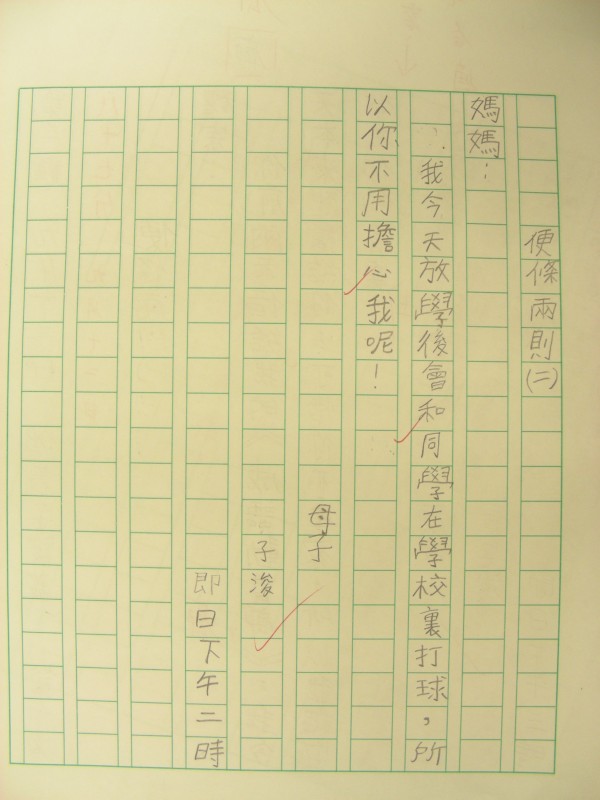 便條兩則(二)
媽媽：
我今天放學後會和同學在學校裏打球，所
以你不用擔心我呢！
母子
子浚
即日下午二時